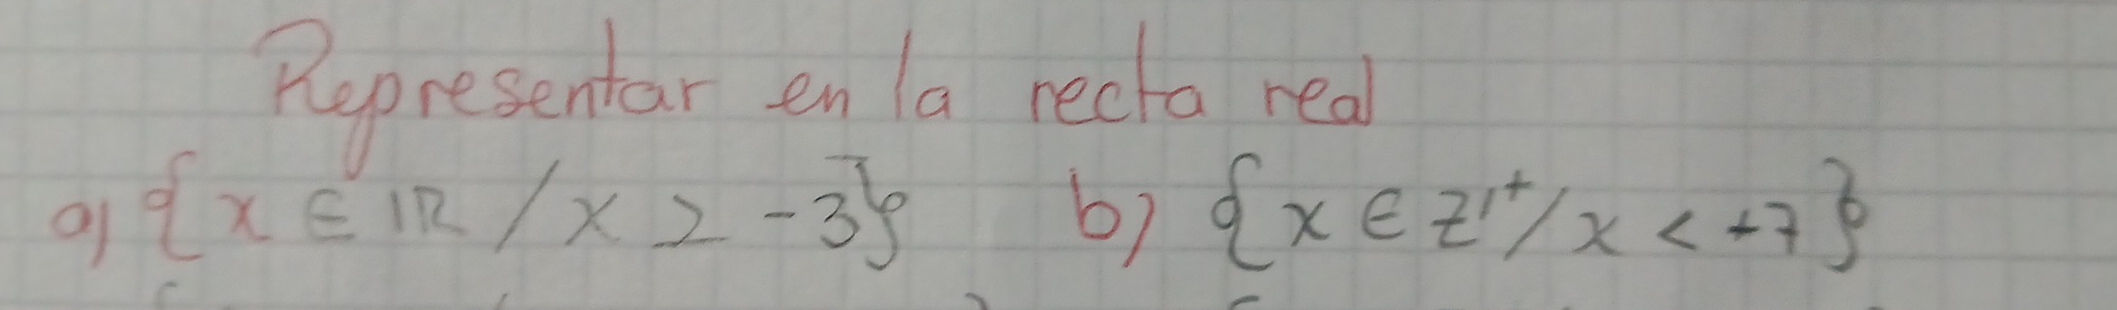 Representar en la recta real
a) {x ∈ IR / x ≥ -3} b) {x ∈ Z⁺ / x < +7}